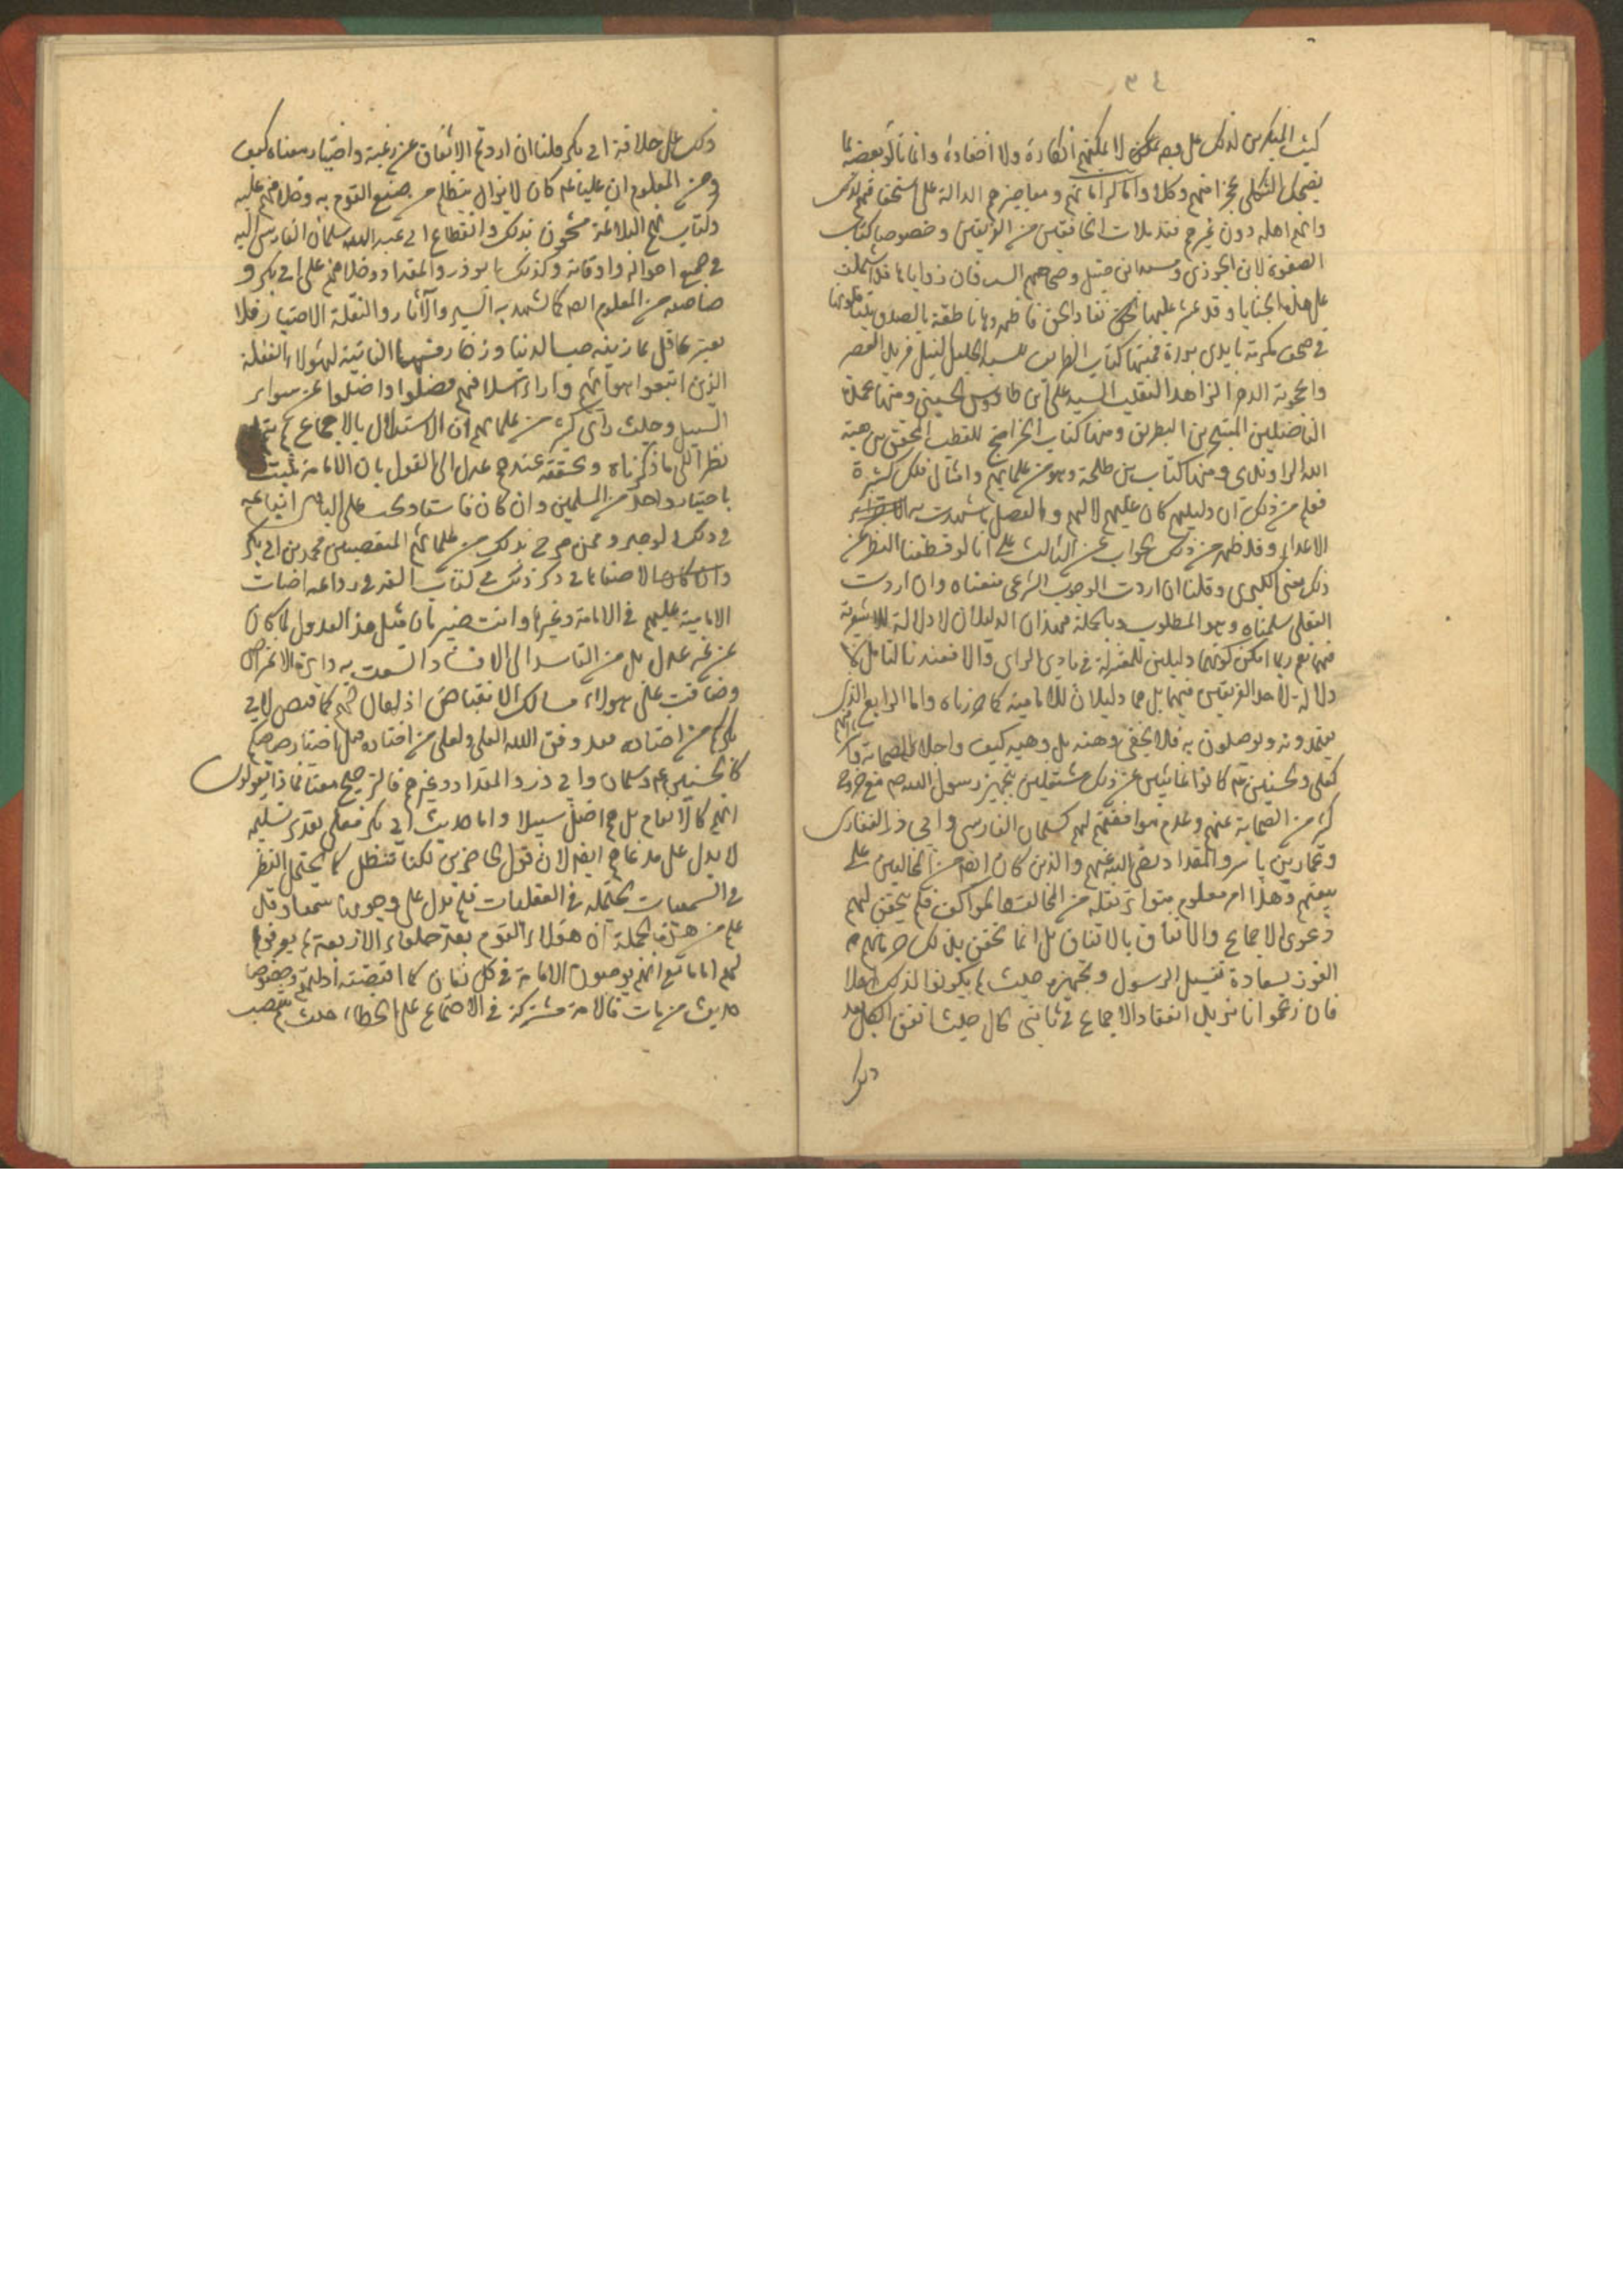 ٣٤
كتب المنكرين لذلك على وجه لا يمكنهم انكاره ولا اخفاءه وانما
يضحك الثكلى عجزا منهم وكذا واما كراماتهم ومعاجزهم الدالة على استحقاقهم لذلك
وانهم اهله دون غيرهم فقد ملات الخافقين من الفريقين وخصوصا كتاب
الصفوة لابن الجوزى ومسند ابن حنبل وصحاحهم الست فان زواياها قد اشتملت
على هذه الخبايا وقد عثر عليها نقاد الحق فاظهروها ناطقة بالصدق
فى صحف مكرمة بايدى بررة فمنها كتاب الطرايف للسيد الجليل النبيل فريد العصر
واعجوبة الدهر الزاهد النقيب السيد على بن طاووس الحسينى ومنها عمدة
الفاضلين المتبحرين البطريق ومنها كتاب الخرايج للقطب المحقق بن هبة
الله الراوندى ومنها كتاب بن طلحة وهو من علمايهم وامثال ذلك كثيرة
فعلم من ذلك ان دليلهم كان عليهم لا لهم والفضل ما شهدت به
الاعداء وقد ظهر من ذلك الجواب عن الثالث على انا لو قطعنا النظر عن
ذلك معنى الكبرى وقلنا ان اردت الوجوب الشرعى منعناه وان اردت
العقلى سلمناه وهو المطلوب وبالجملة فهذان الدليلان لا دلالة للاشعرية
فيهما نعم ربما امكن كونهما دليلين للمعتزلة فى بادى الراى والا فعند التامل لا
دلالة لاحد الفريقين فيهما بل هما دليلان للامامية كما حررناه واما الرابع الذى
يعتمدونه ويوصلون به فلا يخفى وهنه بل وهيه كيف واجلاء الصحابة واكابرهم
كعلى والحسنين عم كانوا غائبين عن ذلك مشتغلين بتجهيز رسول الله صم مع خروج
كثير من الصحابة عنهم وعدم موافقتهم لهم كسلمان الفارسى وابى ذر الغفارى
وعمار بن ياسر والمقداد رضى الله عنهم والذين كان انضم من المخالفين على
بيعتهم وهذا امر معلوم متواتر نقله من المخالف والموالف فلم يتحقق لهم
دعوى الاجماع والاتفاق بالاتفاق بل انما تحقق بذلك حرمانهم من
الفوز بسعادة تغسيل الرسول وتجهيزه حيث لم يكونوا لذلك اهلا
فان زعموا انا نريد انعقاد الاجماع فى ثانى الحال حيث اتفق الكل بعد
ذلك
ذلك على خلافة ابى بكر قلنا ان اردتم الاتفاق عن رغبة واختيار منعناه كيف
ومن المعلوم ان عليا عم كان لا يزال يتظلم من صنيع القوم به وظلامتهم عليه
وكتاب نهج البلاغة مشحون بذلك وانقطاع ابى عبد الله سلمان الفارسى اليه
فى جميع احواله واوقاته وكذلك ابو ذر والمقداد وظلامتهم على ابى بكر و
صاحبه من المعلوم ايضا كما شهد به السير والآثار والنقلة الاخيار فلا
يغتر عاقل بما زينه حب الدنيا وزخارفها الفانية لهؤلاء الغفلة
الذين اتبعوا اهوائهم واراء اسلافهم فضلوا واضلوا عن سواء
السبيل وحيث راى كثير من علمائهم ان الاستدلال بالاجماع لم يتم
نظرا الى ما ذكرناه وتحققه عندهم عدل الى القول بان الامامة تثبت
باختيار واحد من المسلمين وان كان فاسقا ويجب على الباقى اتباعه
فى ذلك وممن صرح بذلك من علمائهم المتعصبين محمد بن ابى بكر
فى ذكر ذلك فى كتاب
الامامية عليهم فى الامامة وغيرها وانت خبير بان مثل هذا العدول لما كان
عن غير عدل بل من الفاسد الى الافسد اتسعت به دايرة الاعتراض
وضاقت على هولاء مسالك الانقباض اذ يقال لهم كما قبض لابى
بكر من اختاره فقد وفق الله العلى لعلى من اختاره قبل اختيار صاحبكم
كالحسنين عم وسلمان وابى ذر والمقداد وغيرهم فالترجيح معنا فماذا يقولون
انهم كالانعام بل هم اضل سبيلا واما حديث ابى بكر فعلى تقدير تسليمه
لا يدل على مدعاهم ايضا لان قول الحاضرين لكنا ننظر كما يحتمل النظر
فى السمعيات يحتمله فى العقليات فلم يدل على وجوبها سمعا وقد
علم من هذه الجملة ان هؤلاء القوم بعد خلفاء الاربعة لم يعرفوا
لهم اماما مع انهم يوجبون الامامة فى كل زمان كما اقتضته ادلتهم وخصوصا
حديث من مات فالامة مشتركة فى الاجتماع على الخطاء حيث لم تنصب